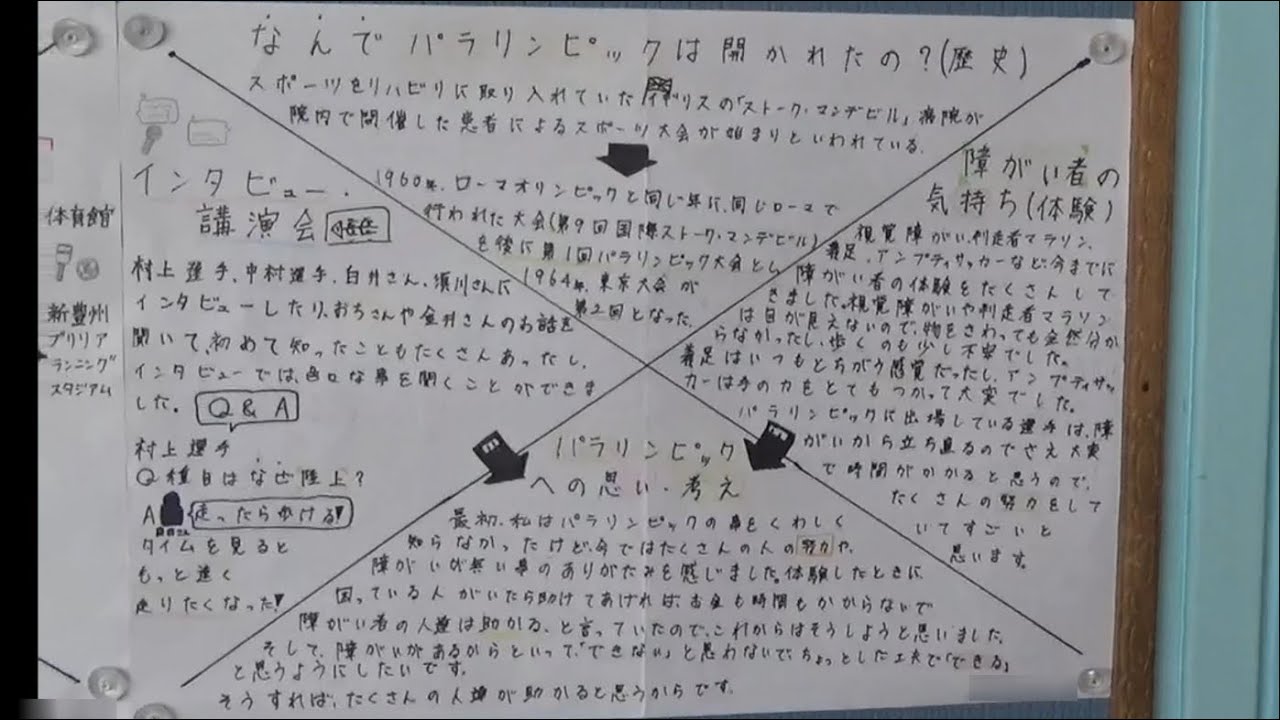 なんでパラリンピックは開かれたの?(歴史)
スポーツをリハビリに取り入れていたイギリスの「ストーク・マンデビル」病院が
院内で開催した患者によるスポーツ大会が始まりといわれている。
1960年、ローマオリンピックと同じ年に、同じローマで
行われた大会(第9回国際ストーク・マンデビル)
を後に第1回パラリンピック大会とし、
1964年、東京大会が
第2回となった。
体育館
新豊州
ブリリア
ランニング
スタジアム
インタビュー、
講演会
村上選手、中村選手、臼井さん、須川さんに
インタビューしたり、おちさんや金井さんのお話を
聞いて、初めて知ったこともたくさんあったし、
インタビューでは、色々な事を聞くことができま
した。
Q&A
村上選手
Q種目はなぜ陸上?
A 走ったら歩ける!
タイムを見ると
もっと速く
走りたくなった!
障がい者の
気持ち(体験)
視覚障がい、判走者マラソン、
義足、アンプティサッカーなど、今までに
障がい者の体験をたくさんして
きました。視覚障がいや判走者マラソン
は目が見えないので、物をさわっても全然分か
らなかったし、歩くのも少し不安でした。
義足はいつもとちがう感覚だったし、アンプティサッ
カーは手の力をとてもつかって大変でした。
パラリンピックに出場している選手は、障
がいから立ち直るのでさえ大変
で時間がかかると思うので、
たくさんの努力をして
いてすごいと
思います。
パラリンピック
への思い・考え
最初、私はパラリンピックの事をくわしく
知らなかったけど、今ではたくさんの人の努力や、
障がいが無い事のありがたみを感じました。体験したときに、
困っている人がいたら助けてあげれば、お金も時間もかからないで
障がい者の人達は助かる、と言っていたので、これからはそうしようと思いました。
そして、障がいがあるからといって、「できない」と思わないで、ちょっとした工夫で「できる」
と思うようにしたいです。
そうすれば、たくさんの人達が助かると思うからです。